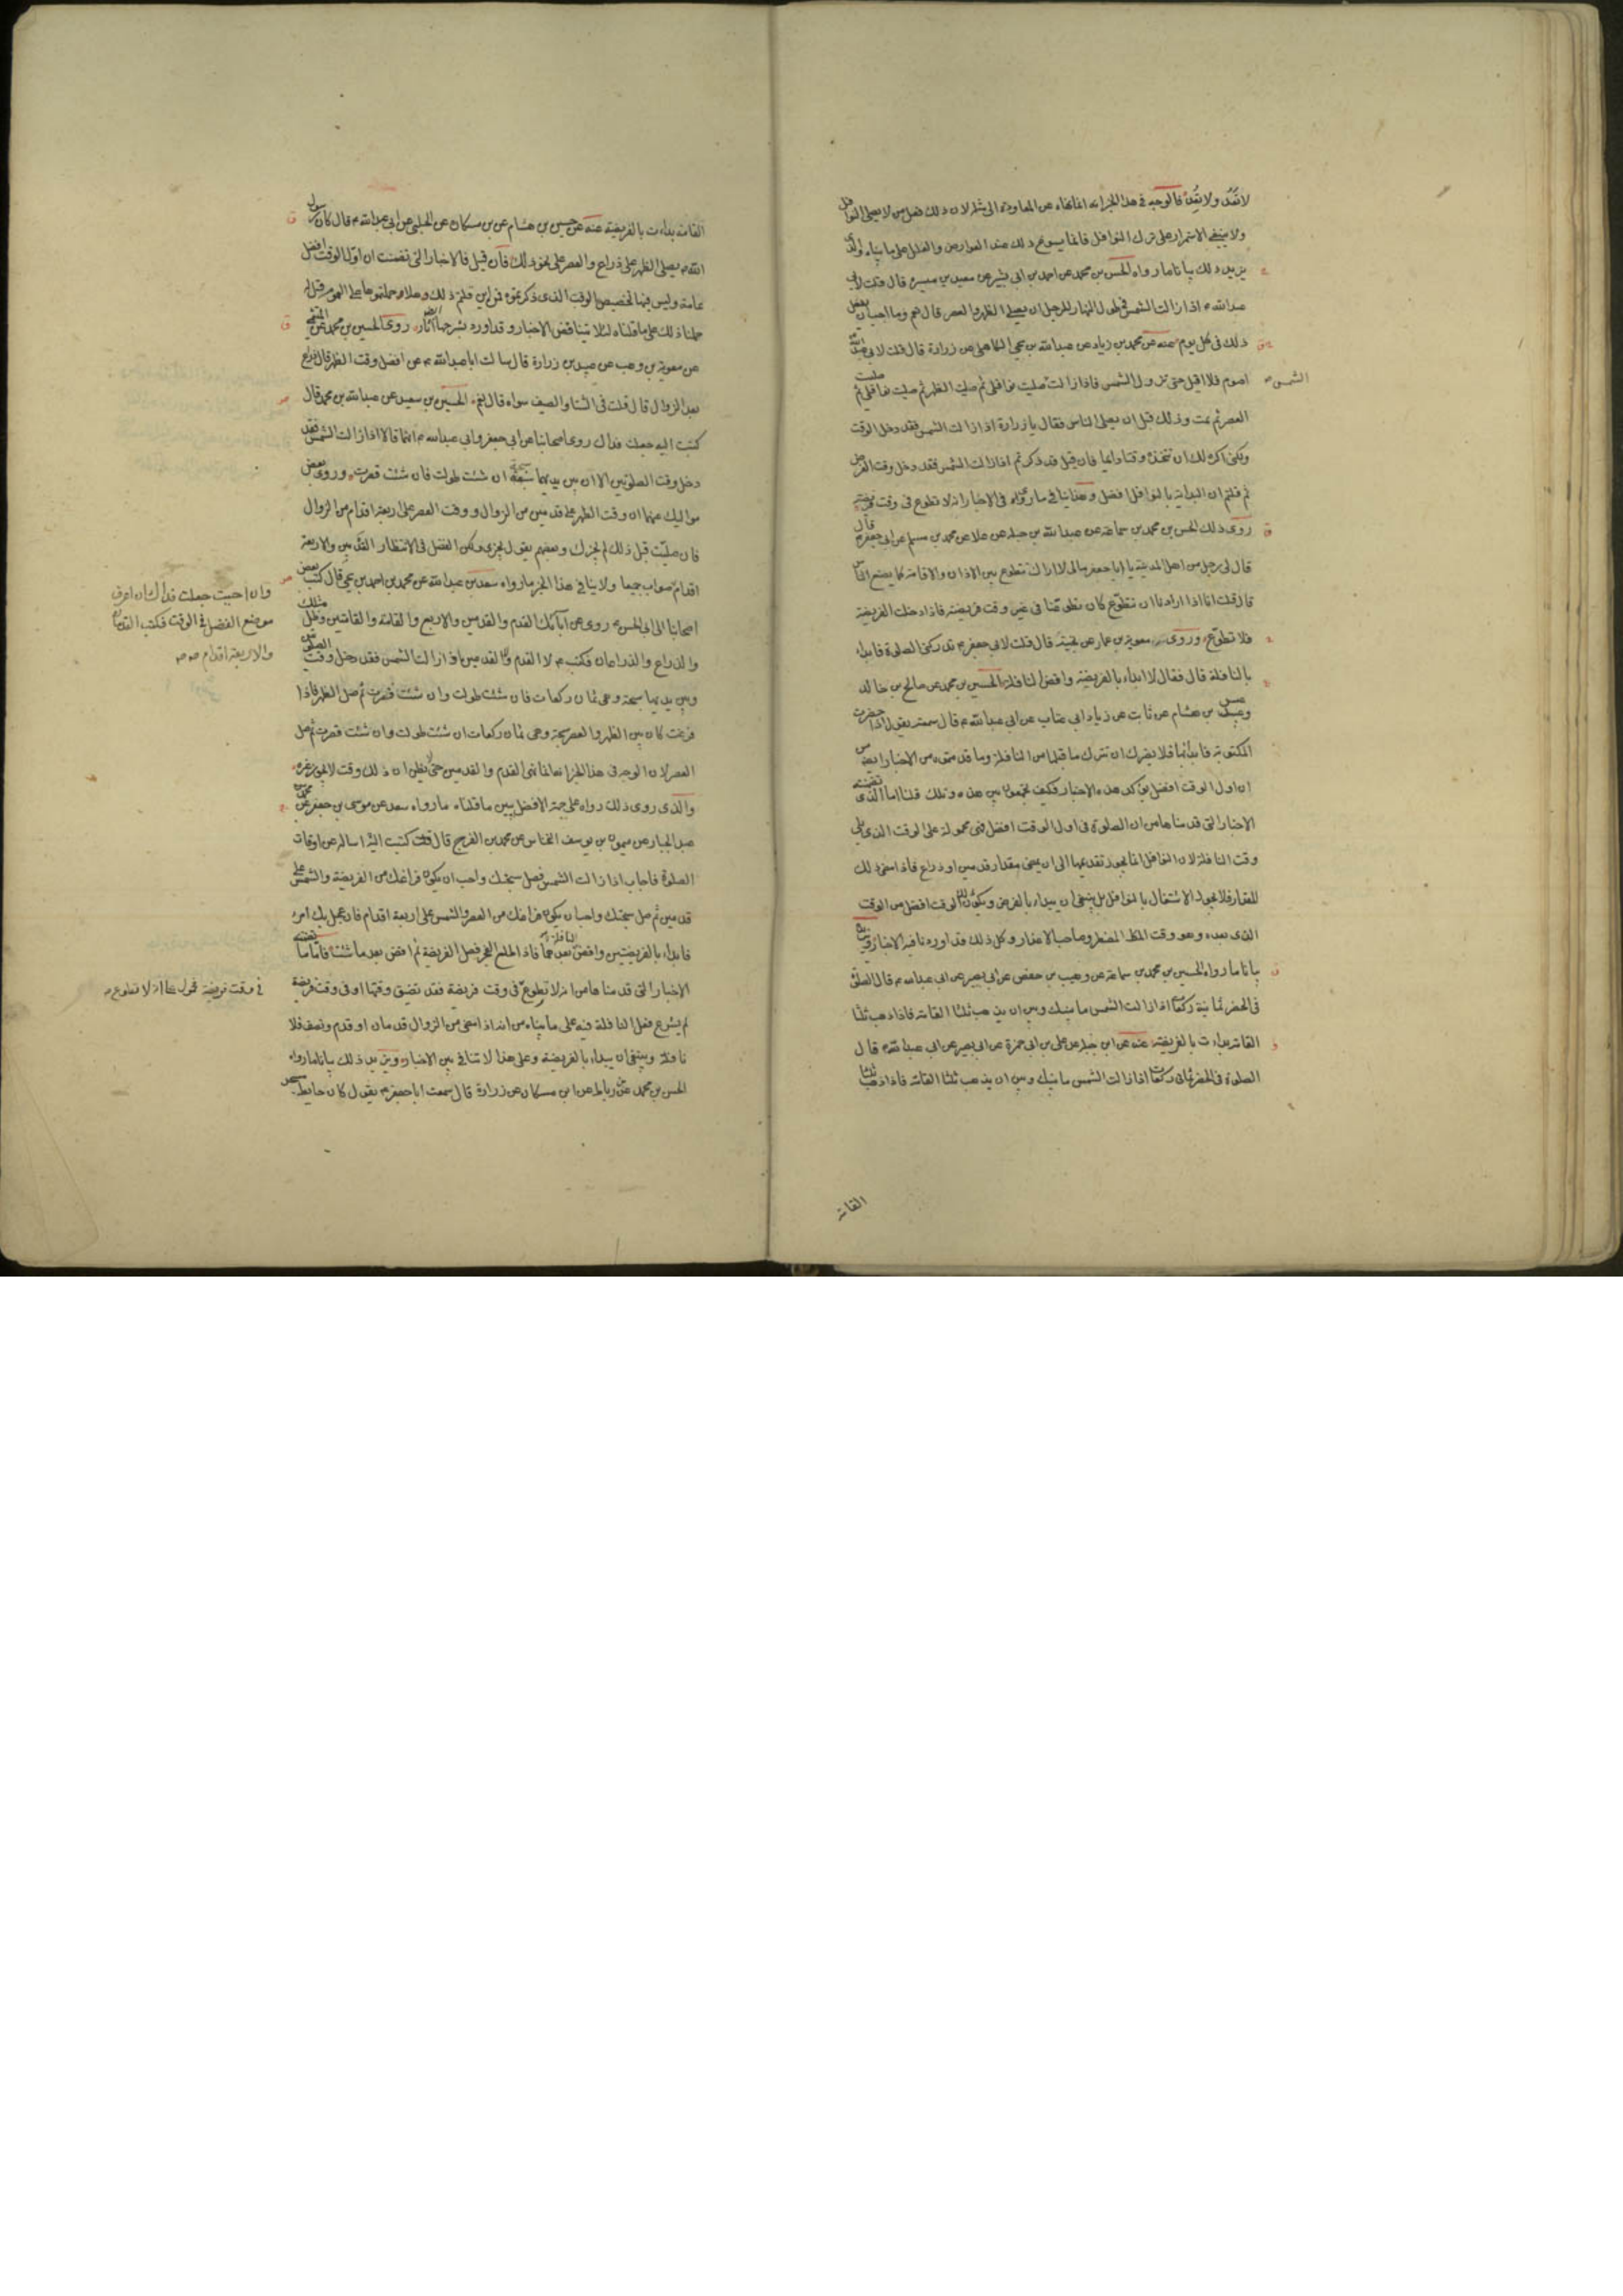 لا تعد ولا تعد فالوجه فى هذا الخبر انه انما نهاه عن المعاودة الى مثله لان ذلك فعل من لا يصلى النوافل
ولا ينبغى الاستمرار على ترك النوافل فانما يسوغ ذلك عند العوارض والعلل على ما بيناه والذى
يزيد ذلك بيانا ما رواه الحسن بن محمد عن احمد بن ابى بشير عن معبد بن ميسرة قال قلت لابى
عبدالله ع اذا زالت الشمس فى طول النهار للرجل ان يصلى الظهر والعصر قال نعم وما احب ان يفعل
ذلك فى كل يوم عنه عن محمد بن زياد عن عبدالله بن يحيى الكاهلى عن زرارة قال قلت لابى عبدالله
اصوم فلا اقيل حتى تزول الشمس فاذا زالت صليت نوافلى ثم صليت الظهر ثم صليت نوافلى ثم صليت
الشمس
العصر ثم نمت وذلك قبل ان يصلى الناس فقال يا زرارة اذا زالت الشمس فقد دخل الوقت
ولكنى اكره لك ان تتخذه وقتا دايما فان قيل قد ذكرتم اذا زالت الشمس فقد دخل وقت الفرض
ثم قلتم ان البداية بالنوافل افضل وهذا ينافى ما رواه فى الاخبار انه لا تطوع فى وقت فريضة
روى ذلك الحسن بن محمد بن سماعة عن عبدالله بن جبلة عن علا عن محمد بن مسلم عن ابى جعفر ع قال
قال لى رجل من اهل المدينة يا ابا جعفر مالى لا اراك تتطوع بين الاذان والاقامة كما يصنع الناس
قال قلت انا اذا اردنا ان نتطوع كان تطوعنا فى غير وقت فريضة فاذا دخلت الفريضة
فلا تطوع وروى معوية بن عمار عن نجية قال قلت لابى جعفر ع تدركنى الصلوة فابداء
بالنافلة قال فقال لا ابداء بالفريضة واقض النافلة الحسين بن محمد عن صالح بن خالد
وعبيس بن هشام عن ثابت عن زياد ابى عتاب عن ابى عبدالله ع قال سمعته يقول اذا حضرت
المكتوبة فابدأ بها فلا يضرك ان تترك ما قبلها من النافلة وما قدمتموه من الاخبار ايضا من
ان اول الوقت افضل يؤكد هذه الاخبار فكيف تجمعون بين هذه وتلك قلنا اما الذى تضمنته
الاخبار التى قدمناها من ان الصلوة فى اول الوقت افضل فهى محمولة على الوقت الذى يلى
وقت النافلة لان النوافل انما يجوز تقديمها الى ان يمضى مقدار قدمين او ذراع فاذا مضى ذلك
المقدار فلا يجوز الاشتغال بالنوافل بل ينبغى ان يبداء بالفرض ويكون ذلك الوقت افضل من الوقت
الذى بعده وهو وقت المضطر وصاحب الاعذار وكل ذلك قد اوردنا فيه الاخبار ويزيده
بيانا ما رواه الحسين بن محمد بن سماعة عن وهيب بن حفص عن ابى بصير عن ابى عبدالله ع قال الصلوة
فى الحضر ثمانية ركعات اذا زالت الشمس ما بينك وبين ان يذهب ثلثا القامة فاذا ذهب ثلثا
القامة بداءت بالفريضة عنه عن ابن جبلة عن على بن ابى حمزة عن ابى بصير عن ابى عبدالله ع قال
الصلوة فى الحضر ثمانى ركعات اذا زالت الشمس ما بينك وبين ان يذهب ثلثا القامة فاذا ذهب ثلثا
القامة
القامة بداءت بالفريضة عنه عن حسين بن هشام عن بن مسكان عن الحلبى عن ابى عبدالله ع قال كان رسول
الله ص يصلى الظهر على ذراع والعصر على نحو ذلك فان قيل فالاخبار التى تضمنت ان اول الوقت افضل
عامة وليس فيها تخصيص الوقت الذى ذكرتموه فمن اين قلتم ذلك وهلا حملتموها على العموم قيل له
حملنا ذلك على ما قلناه لئلا يتناقض الاخبار وقد اورد بشرحها روى الحسين بن محمد عن الميثمى
عن معوية بن وهب عن عبيد بن زرارة قال سالت ابا عبدالله ع عن افضل وقت الظهر قال ذراع
بعد الزوال قال قلت فى الشتا والصيف سواء قال نعم الحسين بن سعيد عن عبدالله بن محمد قال
كتبت اليه جعلت فداك روى اصحابنا عن ابى جعفر وابى عبدالله ع انهما قالا اذا زالت الشمس فقد
دخل وقت الصلوتين الا ان بين يديهما سبحة ان شئت طولت فان شئت قصرت وروى بعض
مواليك عنهما ان وقت الظهر على قدمين من الزوال ووقت العصر على اربعة اقدام من الزوال
فان صليت قبل ذلك لم يجزك وبعضهم يقول يجزى ولكن الفضل فى الانتظار القدمين والاربعة
اقدام صواب جميعا ولا ينافى هذا الخبر ما رواه سعد بن عبدالله عن محمد بن احمد بن يحيى قال كتب بعض
وان احببت جعلت فداك ان اعرف
موضع الفضل فى الوقت فكتب القدمان
والاربعة اقدام صح
اصحابنا الى ابى الحسن ع روى عن آبائك القدم والقدمين والاربع والقامة والقامتين وظل مثلك
والذراع والذراعان فكتب ع لا القدم ولا القدمين اذا زالت الشمس فقد دخل وقت الصلوتين
وبين يديها سبحة وهى ثمان ركعات فان شئت طولت وان شئت قصرت ثم صل الظهر فاذا
فرغت كان بين الظهر والعصر سبحة وهى ثمان ركعات ان شئت طولت وان شئت قصرت ثم صل
العصر لان الوجه فى هذا الخبر انه انما نفى القدم والقدمين حتى لا يظن ان ذلك وقت لا يجوز غيره
والذى روى ذلك رواه على جهة الافضل يبين ما قلناه ما رواه سعد عن موسى بن جعفر عن محمد بن
عبد الجبار عن ميمون بن يوسف النخاس عن محمد بن الفرج قال كتبت اليه اساله عن اوقات
الصلوة فاجاب اذا زالت الشمس فصل سبحتك واحب ان يكون فراغك من الفريضة والشمس على
قدمين ثم صل سبحتك واحب ان يكون فراغك من العصر والشمس على اربعة اقدام فان عجل بك امر
فابداء بالفريضتين واقض النافلة بعدهما فاذا طلع الفجر فصل الفريضة ثم اقض بعد ما شئت فاما ما تضمنته
الاخبار التى قدمناها من انه لا تطوع فى وقت فريضة فقد تضيق وقتها او فى وقت فريضة
فى وقت فريضة محمول على انه لا تطوع
لم يشرع فعل النافلة فيه على ما بيناه من انه اذا مضى من الزوال قدمان او قدم ونصف فلا
نافلة وينبغى ان يبداء بالفريضة وعلى هذا لا تنافى بين الاخبار ويزيد ذلك بيانا ما رواه
الحسن بن محمد عن بن رباط عن ابن مسكان عن زرارة قال سمعت ابا جعفر ع يقول كان حايط مسجد